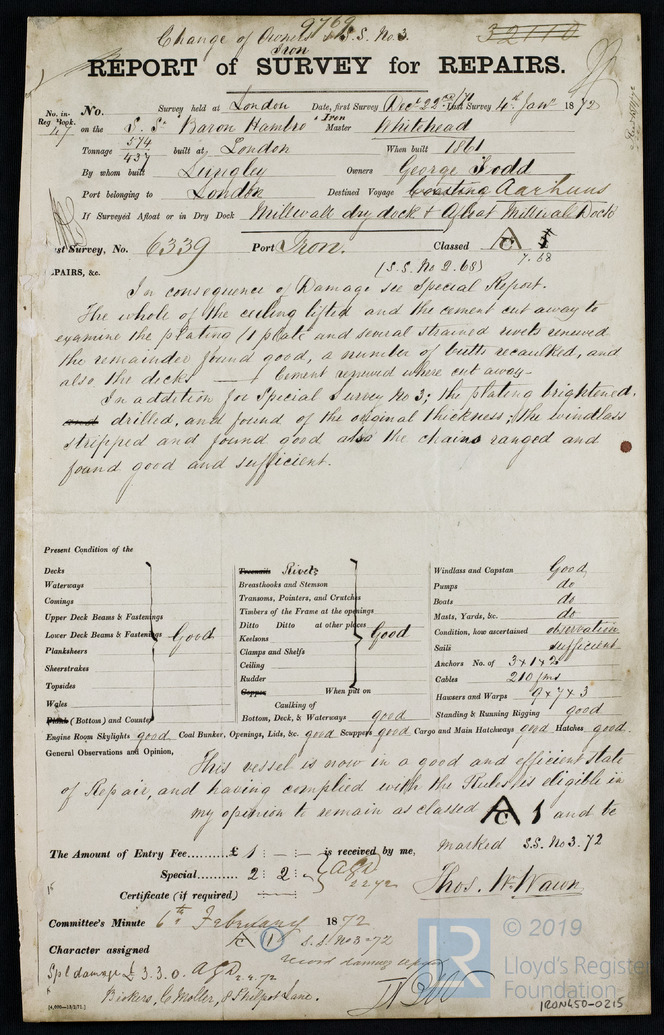 9769
Change of Owners & S.S. No 3.
32110
Iron
REPORT of SURVEY for REPAIRS.
No. in Reg Book. 47 No. Survey held at London Date, first Survey Decr 22nd/71 Last Survey 4th Jany 1872
on the S.S. "Baron Hambro" Iron Master Whitehead
Tonnage 574 / 437 built at London When built 1861
By whom built Lungley Owners George Dodd
Port belonging to London Destined Voyage Coasting Aarhuus
If Surveyed Afloat or in Dry Dock Millwall dry dock & Afloat Millwall Dock
ast Survey, No. 6339 Port Iron. Classed A 1
7.68
(S.S. No 2. 68)
EPAIRS, &c.
In consequence of Damage see Special Report.
The whole of the ceiling lifted and the cement cut away to
examine the plating (1 plate and several strained rivets renewed
the remainder found good, a number of butts recaulked, and
also the decks — & Cement renewed where cut away—
In addition for Special Survey No 3; the plating brightened,
and drilled, and found of the original thickness; the windlass
stripped and found good also the chains ranged and
found good and sufficient.
Present Condition of the
Decks
Waterways
Comings
Upper Deck Beams & Fastenings
Lower Deck Beams & Fastenings Good
Planksheers
Sheerstrakes
Topsides
Wales
Plank (Bottom) and Counter
Treenails Rivets
Breasthooks and Stemson
Transoms, Pointers, and Crutches
Timbers of the Frame at the openings
Ditto Ditto at other places Good
Keelsons
Clamps and Shelfs
Ceiling
Rudder
Copper When put on
Caulking of
Bottom, Deck, & Waterways good
Windlass and Capstan Good
Pumps do
Boats do
Masts, Yards, &c. do
Condition, how ascertained observation
Sails sufficient
Anchors No. of 3 x 1 x 2
Cables 210 fms
Hawsers and Warps 9 x 7 x 3
Standing & Running Rigging good
Engine Room Skylights good Coal Bunker, Openings, Lids, &c. good Scuppers good Cargo and Main Hatchways good Hatches good
General Observations and Opinion,
This vessel is now in a good and efficient state
of Repair, and having complied with the Rules is eligible in
my opinion to remain as classed A 1 and to be
marked S.S. No 3. 72
The Amount of Entry Fee......... £ 1 : - : - is received by me,
Special......... 2 : 2 : -
Certificate (if required)
Thos. W. Wawn
Committee's Minute 6th February 1872
A 1 S.S. No 3-72
Character assigned
Spl damage £ 3.3.0.
[4,000—13/2/71.]
© 2019
LR
Lloyd's Register
Foundation
IRON450-0215